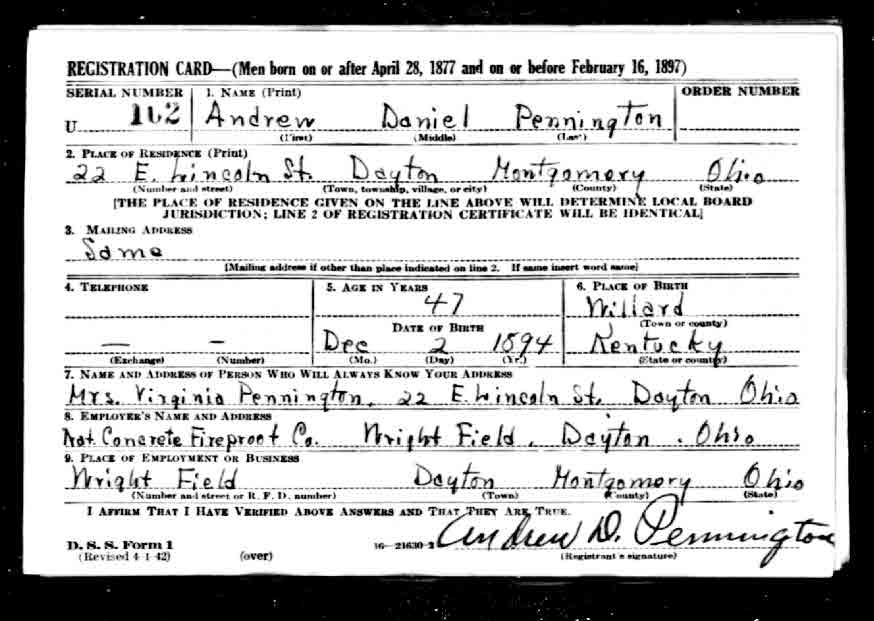 REGISTRATION CARD—(Men born on or after April 28, 1877 and on or before February 16, 1897)
SERIAL NUMBER 1. NAME (Print) ORDER NUMBER
U 162 Andrew Daniel Pennington
(First) (Middle) (Last)
2. PLACE OF RESIDENCE (Print)
22 E. Lincoln St. Dayton Montgomery Ohio
(Number and street) (Town, township, village, or city) (County) (State)
[THE PLACE OF RESIDENCE GIVEN ON THE LINE ABOVE WILL DETERMINE LOCAL BOARD
JURISDICTION; LINE 2 OF REGISTRATION CERTIFICATE WILL BE IDENTICAL]
3. MAILING ADDRESS
Same
[Mailing address if other than place indicated on line 2. If same insert word same]
4. TELEPHONE 5. AGE IN YEARS 6. PLACE OF BIRTH
47 Willard
DATE OF BIRTH (Town or county)
— — Dec 2 1894 Kentucky
(Exchange) (Number) (Mo.) (Day) (Yr.) (State or country)
7. NAME AND ADDRESS OF PERSON WHO WILL ALWAYS KNOW YOUR ADDRESS
Mrs. Virginia Pennington, 22 E. Lincoln St. Dayton Ohio
8. EMPLOYER'S NAME AND ADDRESS
Nat Concrete Fireproof Co. Wright Field, Dayton, Ohio
9. PLACE OF EMPLOYMENT OR BUSINESS
Wright Field Dayton Montgomery Ohio
(Number and street or R. F. D. number) (Town) (County) (State)
I AFFIRM THAT I HAVE VERIFIED ABOVE ANSWERS AND THAT THEY ARE TRUE.
D. S. S. Form 1 16—21630-2 Andrew D. Pennington
(Revised 4-1-42) (over) (Registrant's signature)